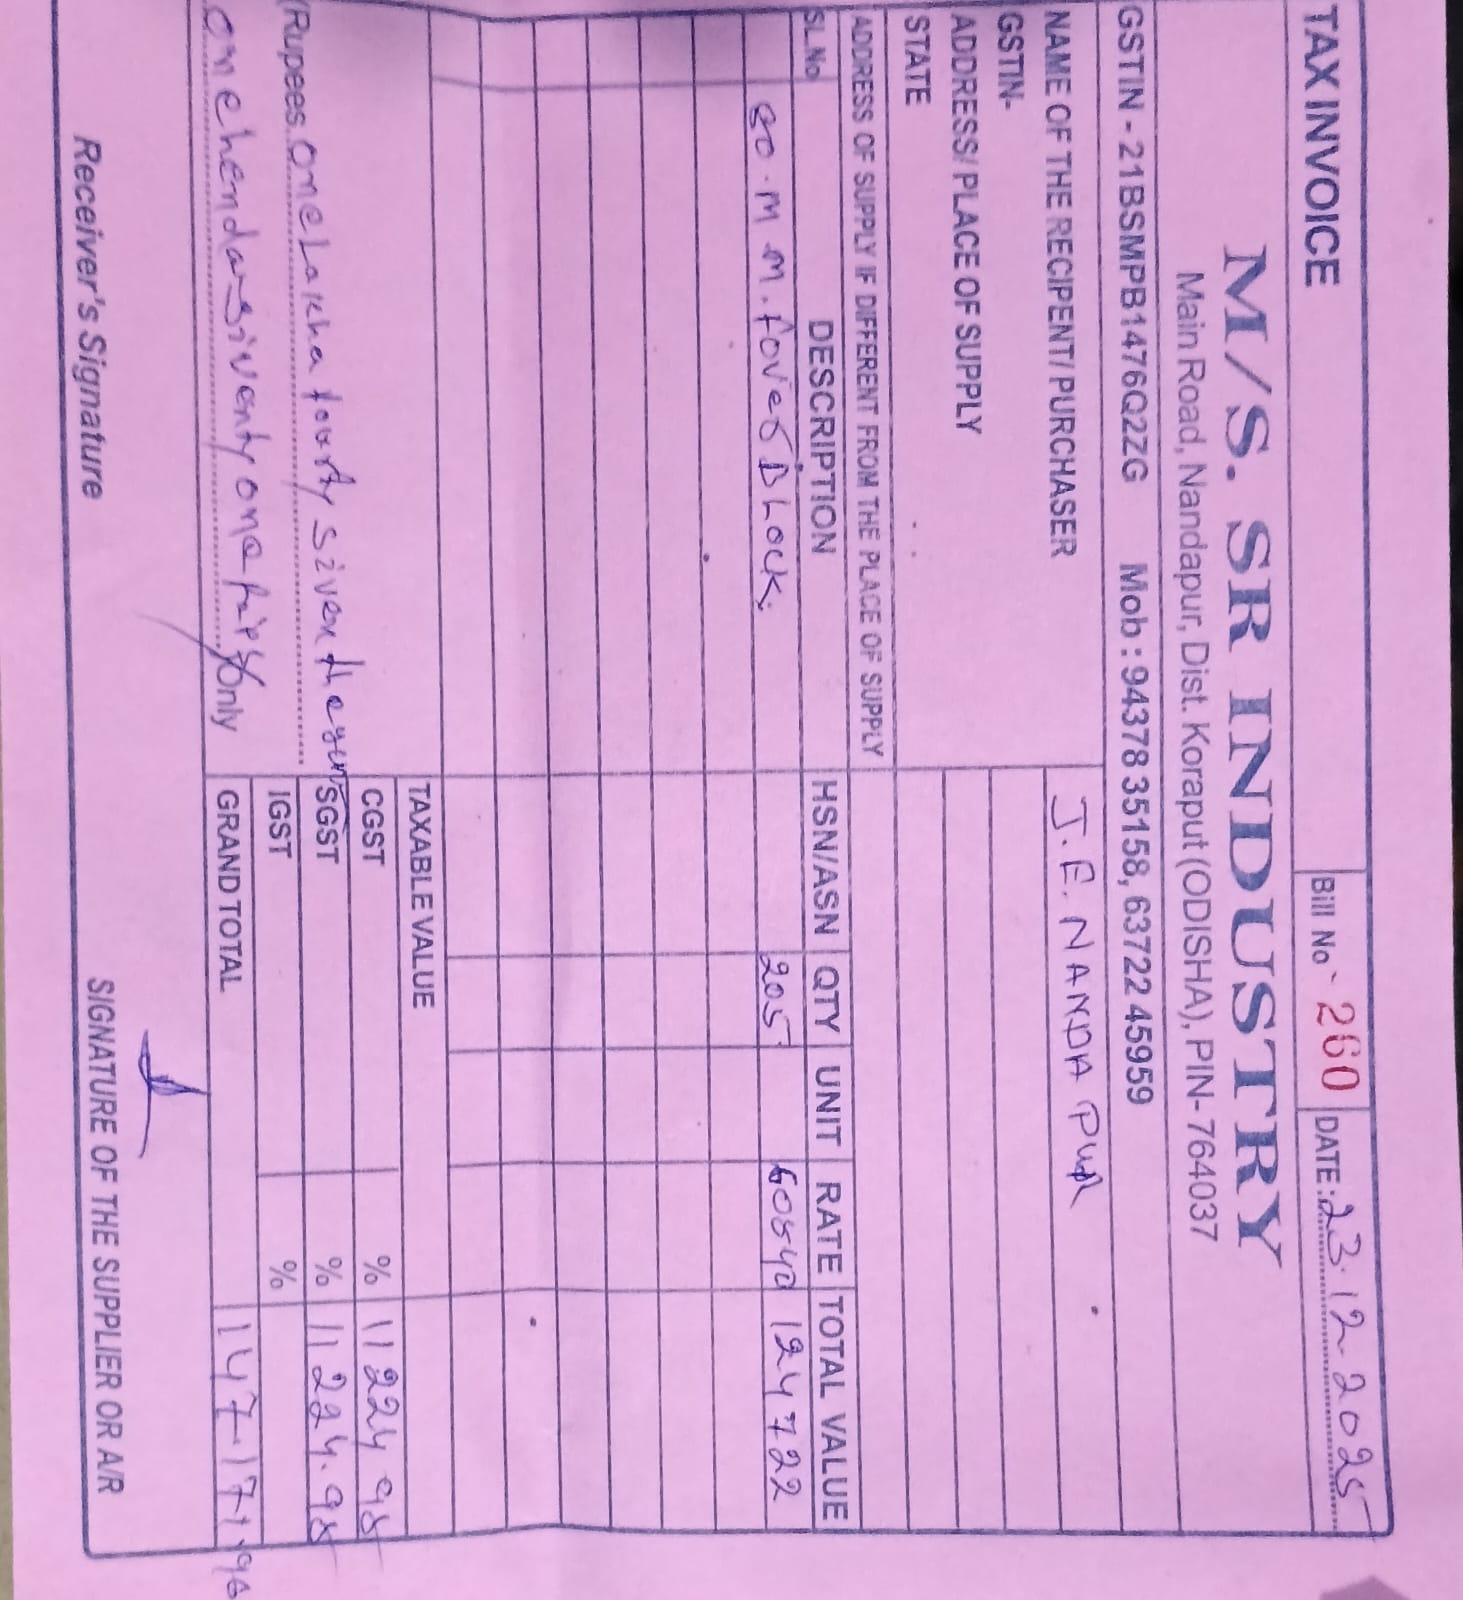 TAX INVOICE
Bill No 260
DATE: 23.12.2025
M/S. SR INDUSTRY
Main Road, Nandapur, Dist. Koraput (ODISHA), PIN- 764037
GSTIN - 21BSMPB1476Q2ZG Mob : 94378 35158, 63722 45959
NAME OF THE RECIPENT/ PURCHASER J.E. NANDA PUR
GSTIN-
ADDRESS/ PLACE OF SUPPLY
STATE
ADDRESS OF SUPPLY IF DIFFERENT FROM THE PLACE OF SUPPLY
SL.No DESCRIPTION HSN/ASN QTY UNIT RATE TOTAL VALUE
80.M M. fover BLock. 205 124722
TAXABLE VALUE
CGST % 11224 98
(Rupees. one Lakha fourty siven SGST % 11224.98
IGST %
one hendar siventy one Only GRAND TOTAL 147171.96
Receiver's Signature SIGNATURE OF THE SUPPLIER OR A/R